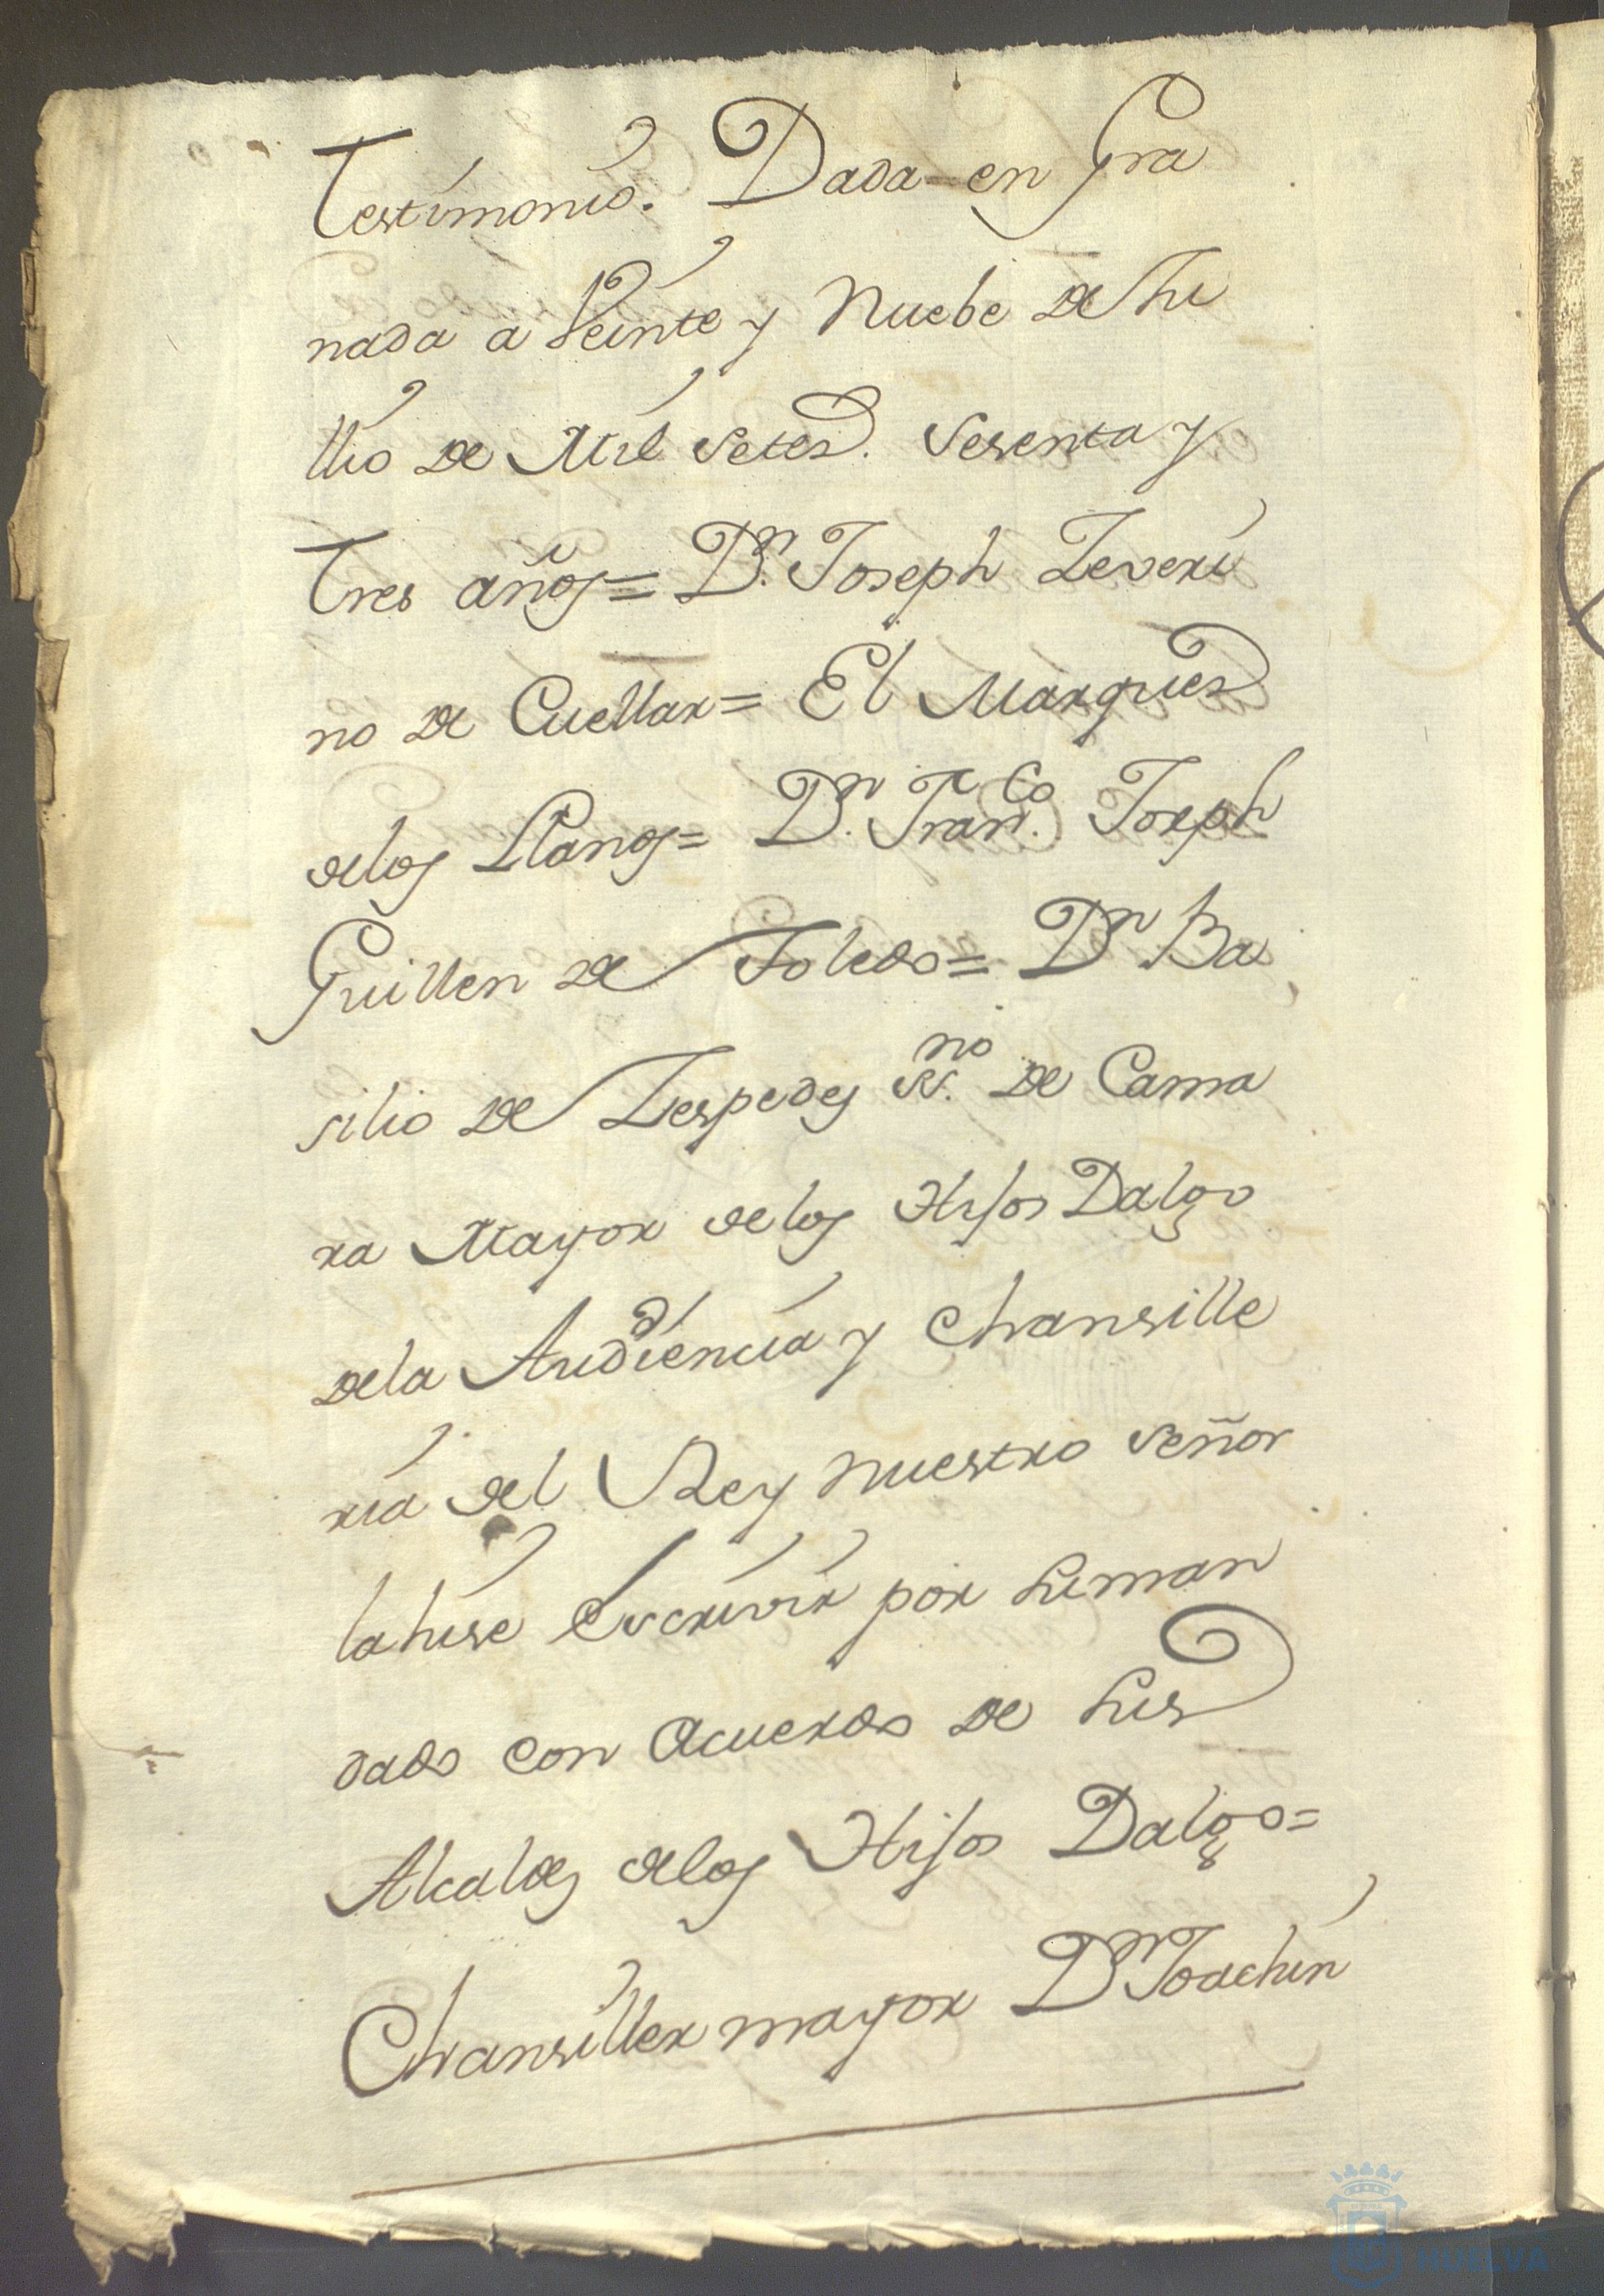 Testimonio. Dada en Gra
nada a Veinte y Nuebe de Ju
llio de Mil Setes. Sesenta y
Tres años= Dn. Joseph Zeveri
no de Cuellar= El Marques
delos Llanos= Dn. Franco. Joseph
Guillen de Toledo= Dn Ba
silio de Zespedes de Cama
ra Mayor delos Hijos Dalgo
dela Audiencia y Chansille
ria del Rey nuestro señor
lahise Escrivir por suman
dado con acuerdo de sus
Alcaldes delos Hijos Dalgo=
Chansiller mayor Dn Joachin
HUELVA